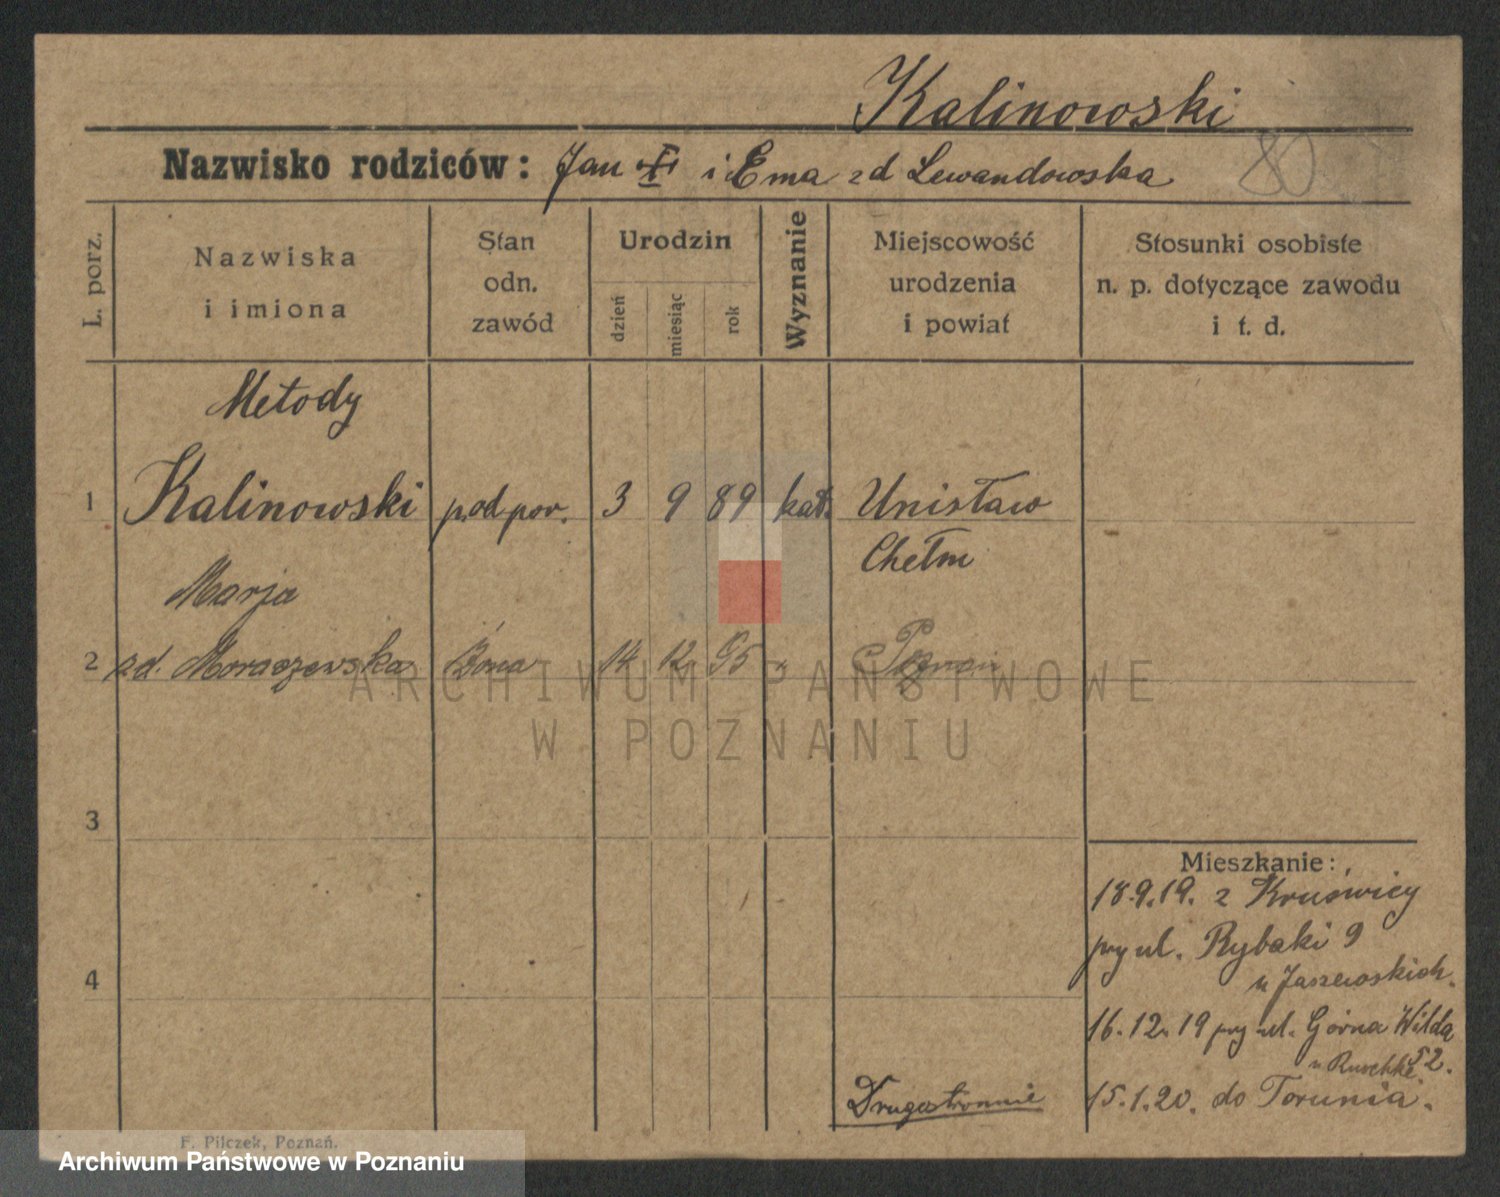 Kalinowski
Nazwisko rodziców: Jan i Ema zd Lewandowska
80
L. porz.
Nazwiska
i imiona
Stan
odn.
zawód
Urodzin
dzień
miesiąc
rok
Wyznanie
Miejscowość
urodzenia
i powiat
Stosunki osobiste
n. p. dotyczące zawodu
i t. d.
Metody
1 Kalinowski podpor. 3 9 89 kat. Unisław
Chełm
Marja
2 zd. Moraczewska żona 14 12 95 " Poznań
3
4
Mieszkanie:
18.9.19. z Kruświcy
przy ul. Rybaki 9
u
16.12.19 przy ul. Górna Wilda
52.
u Ruschke
15.1.20. do Torunia.
Drugostronnie
F. Pilczek, Poznań.
ARCHIWUM PAŃSTWOWE
W POZNANIU
Archiwum Państwowe w Poznaniu